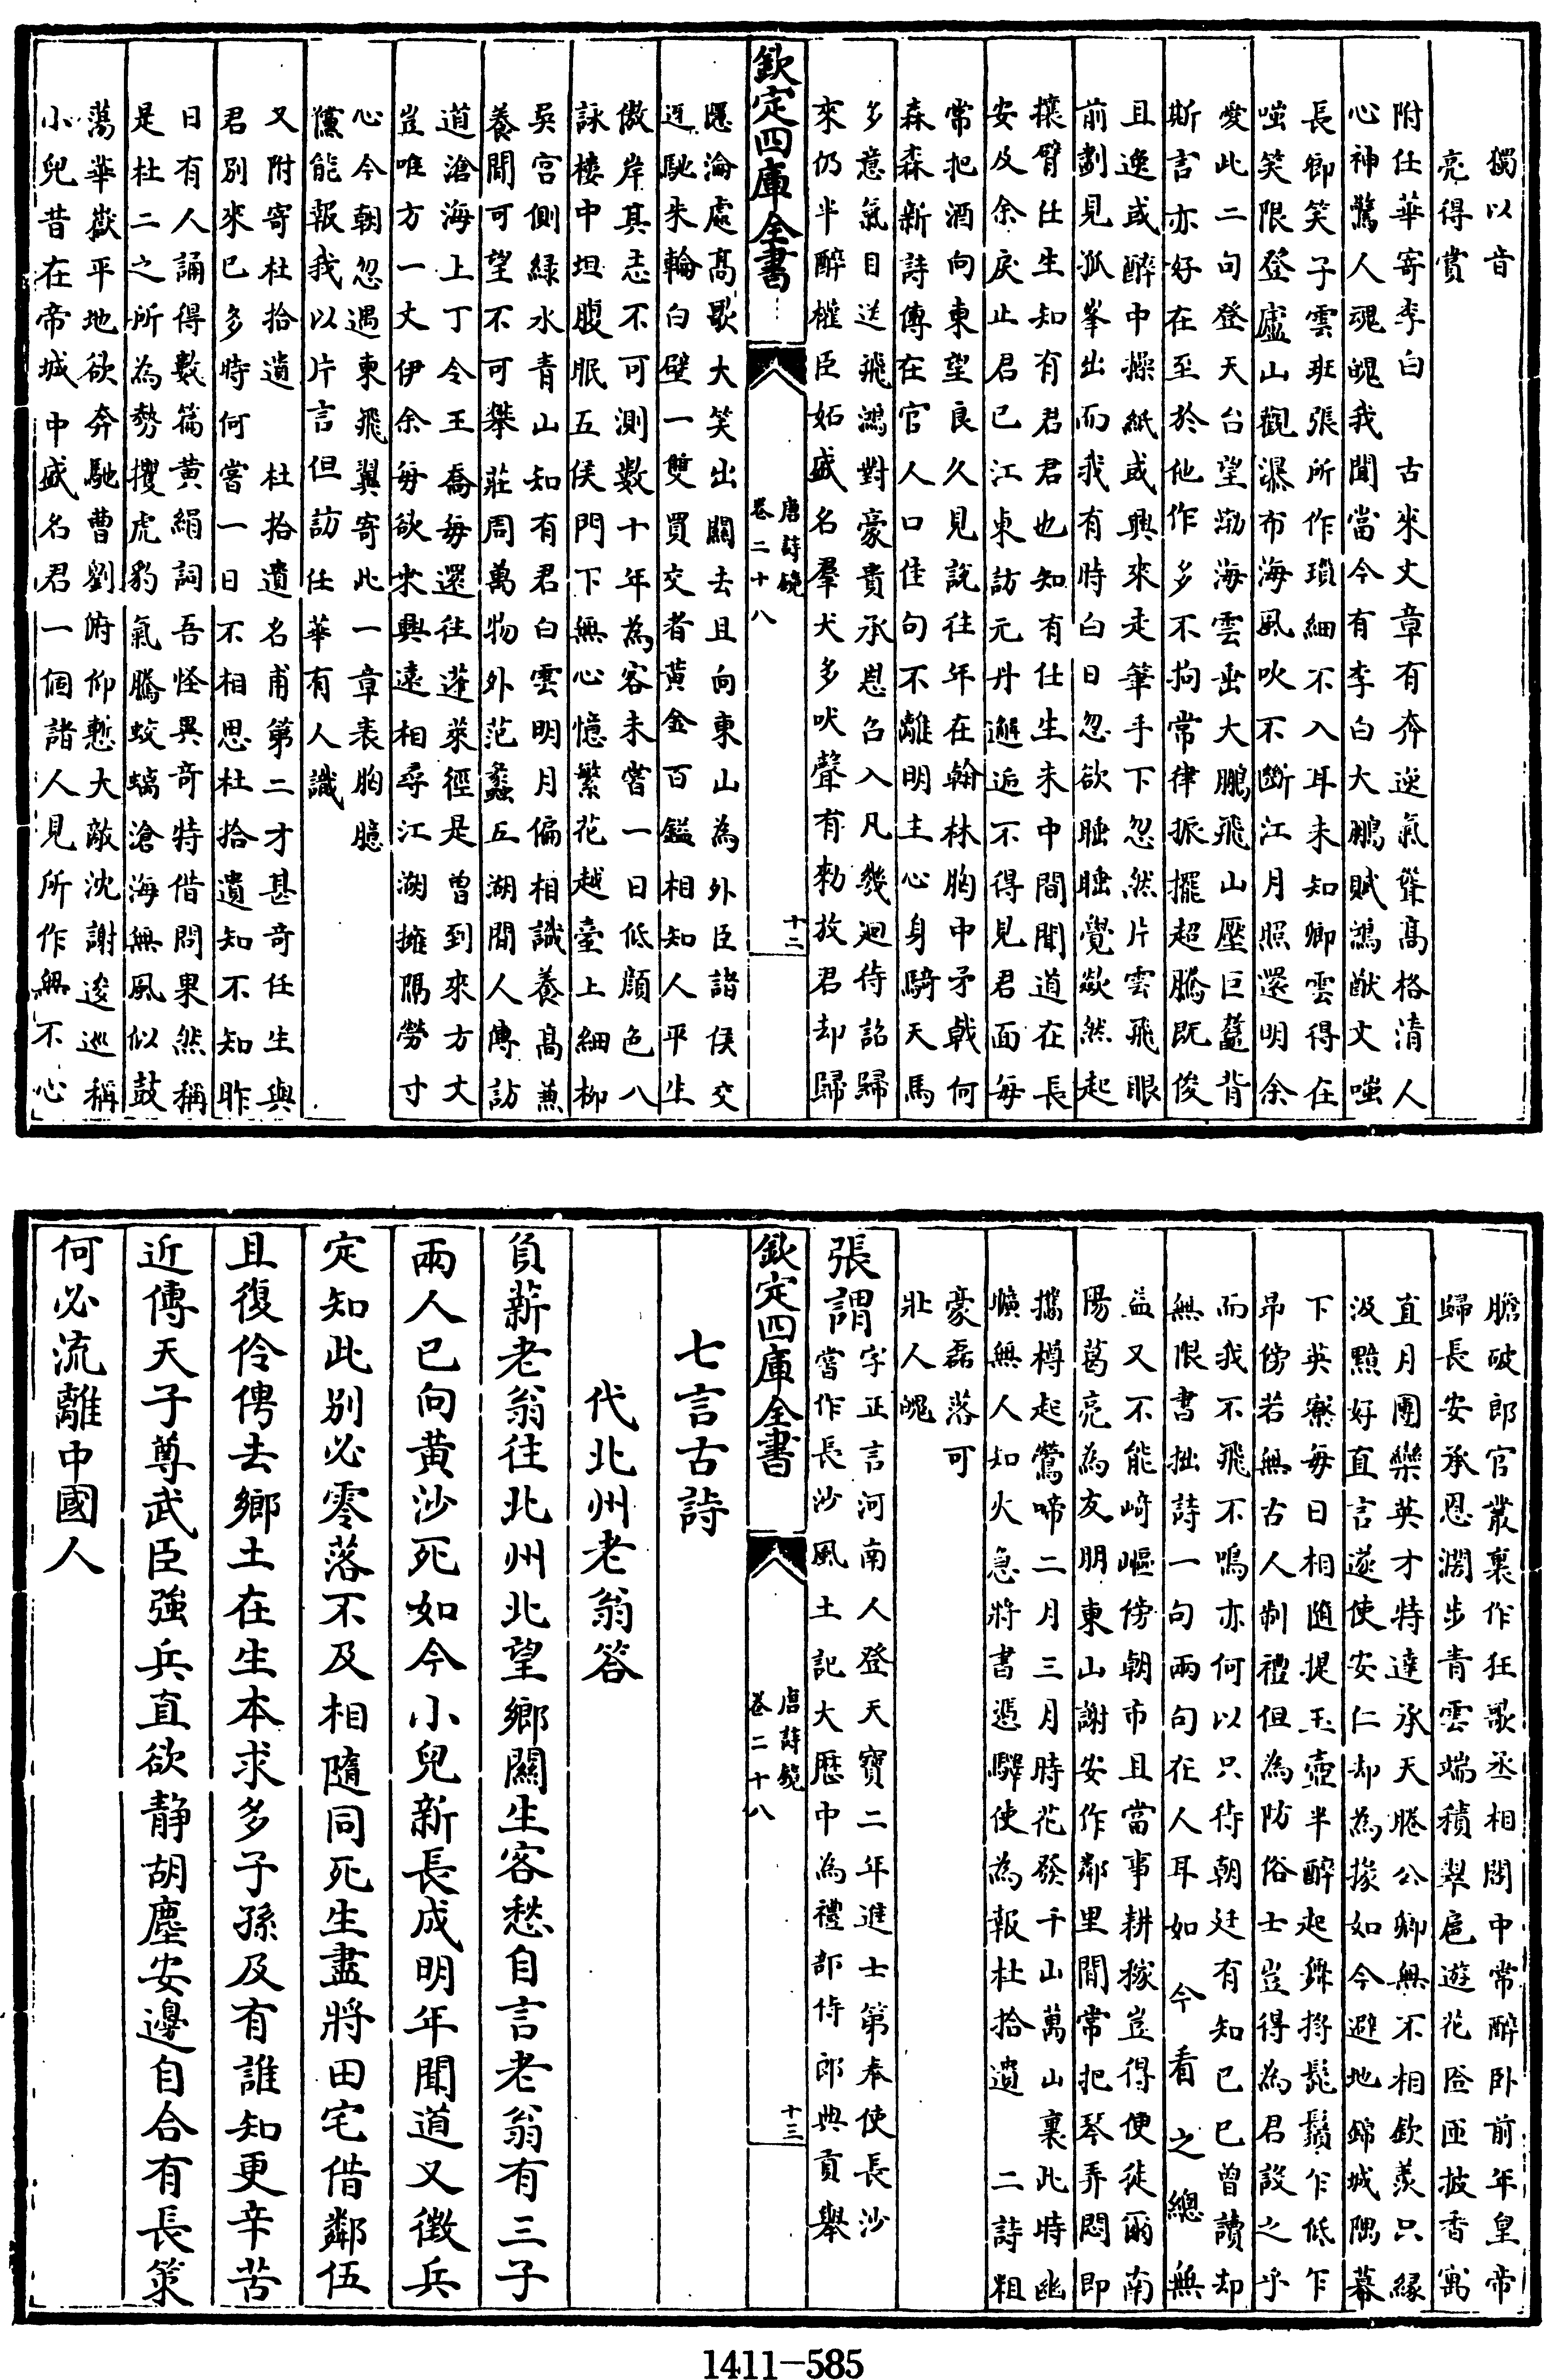 獨以音
亮得賞
附任華寄李白　古來文章有奔逆氣聳高格清人
心神驚人魂魄我聞當今有李白大鵬賦鴻猷文嗤
長卿笑子雲班張所作瑣細不入耳未知卿雲得在
嗤笑限登廬山觀瀑布海風吹不斷江月照還明余
愛此二句登天台望渤海雲垂大鵬飛山壓巨鼇背
斯言亦好在至於他作多不拘常律振擺超騰既俊
且逸或醉中操紙或興來走筆手下忽然片雲飛眼
前劃見孤峯出而我有時白日忽欲睡睡覺欻然起
攘臂任生知有君君也知有任生未中間聞道在長
安及余戾止君已江東訪元丹邂逅不得見君面每
常把酒向東望良久見說往年在翰林胸中矛戟何
森森新詩傳在宮人口佳句不離明主心身騎天馬
多意氣目送飛鴻對豪貴承恩召入凡幾迴待詔歸
來仍半醉權臣妬盛名羣犬多吠聲有勅放君却歸
欽定四庫全書
唐詩鏡
卷二十八
十二
隱淪處高歌大笑出關去且向東山為外臣諸侯交
迓馳朱輪白璧一雙買交者黃金百鎰相知人平生
傲岸其志不可測數十年為客未嘗一日低顔色八
詠樓中坦腹眠五侯門下無心憶繁花越臺上細柳
吳宮側綠水青山知有君白雲明月偏相識養高兼
養閒可望不可攀莊周萬物外范蠡五湖間人傳訪
道滄海上丁令王喬每還往蓬萊徑是曾到來方丈
豈唯方一丈伊余每欲乘興遠相尋江湖擁隔勞寸
心今朝忽遇東飛翼寄此一章表胸臆
儻能報我以片言但訪任華有人識
又附寄杜拾遺　杜拾遺名甫第二才甚奇任生與
君別來已多時何嘗一日不相思杜拾遺知不知昨
日有人誦得數篇黃絹詞吾怪異奇特借問果然稱
是杜二之所為勢攫虎豹氣騰蛟螭滄海無風似鼓
蕩華嶽平地欲奔馳曹劉俯仰慙大敵沈謝逡巡稱
小兒昔在帝城中盛名君一個諸人見所作無不心
膽破郎官叢裏作狂歌丞相閣中常醉卧前年皇帝
歸長安承恩濶步青雲端積翠扈遊花匼匝披香寓
直月團欒英才特達承天睠公卿無不相欽羨只緣
汲黯好直言遂使安仁却為掾如今避地錦城隅幕
下英寮每日相隨提玉壺半醉起舞捋髭鬚乍低乍
昂傍若無古人制禮但為防俗士豈得為君設之乎
而我不飛不鳴亦何以只待朝廷有知己已曾讀却
無限書拙詩一句兩句在人耳如今看之總無
益又不能崎嶇傍朝市且當事耕稼豈得便徒爾南
陽葛亮為友朋東山謝安作鄰里閒常把琴弄悶即
攜樽起鶯啼二月三月時花發千山萬山裏此時幽
曠無人知火急將書憑驛使為報杜拾遺　二詩粗
豪磊落可
壯人魄
張謂
字正言河南人登天寶二年進士第奉使長沙
嘗作長沙風土記大厯中為禮部侍郎典貢舉
欽定四庫全書
唐詩鏡
卷二十八
十三
七言古詩
代北州老翁答
負薪老翁往北州北望鄉關生客愁自言老翁有三子
兩人已向黃沙死如今小兒新長成明年聞道又徵兵
定知此別必零落不及相隨同死生盡將田宅借鄰伍
且復伶俜去鄉土在生本求多子孫及有誰知更辛苦
近傳天子尊武臣強兵直欲静胡塵安邊自合有長策
何必流離中國人
1411-585